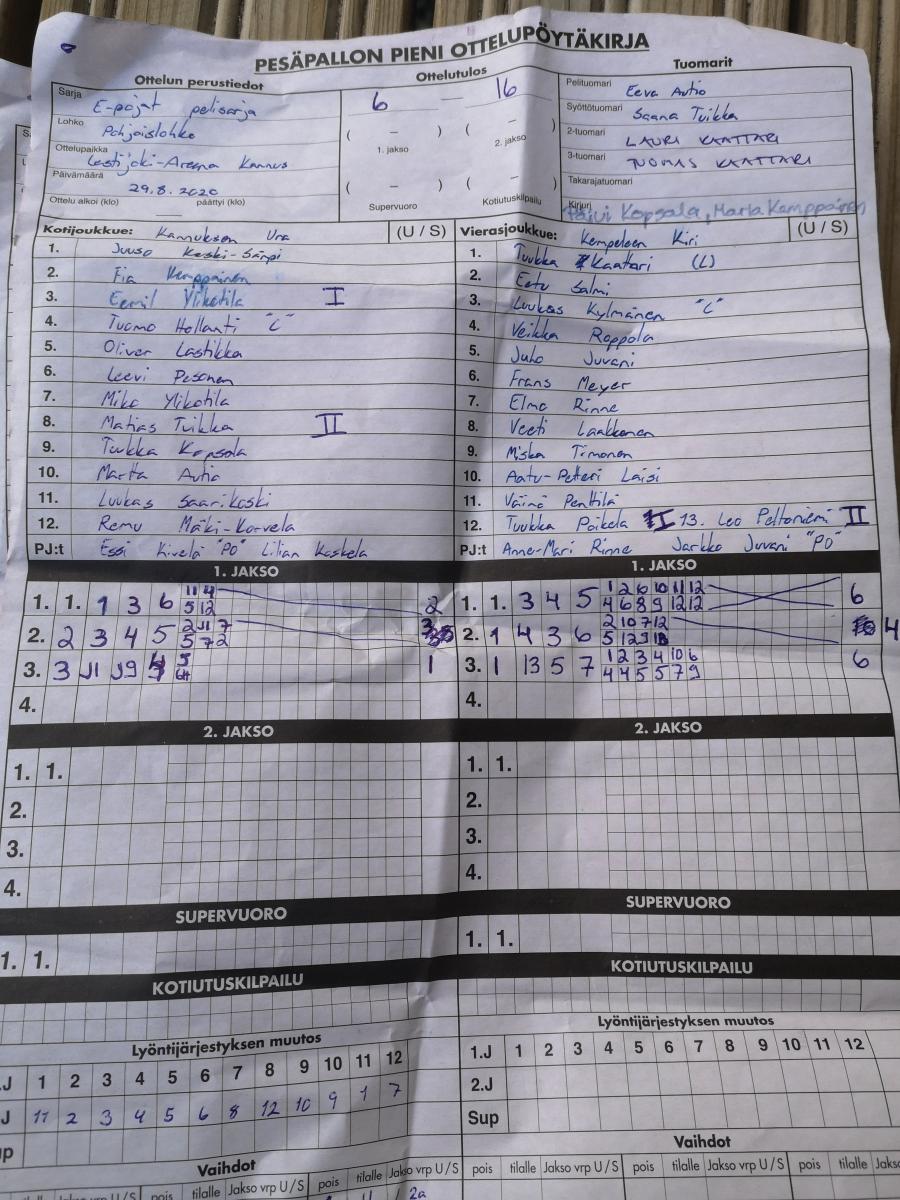 PESÄPALLON PIENI OTTELUPÖYTÄKIRJA
Ottelun perustiedot
Sarja E-pojat pelisarja
Lohko Pohjoislohko
Ottelupaikka Lestijoki-Areena Kannus
Päivämäärä 29.8.2020
Ottelu alkoi (klo) päättyi (klo)
Ottelutulos
6 — 16
( – ) ( – )
1. jakso 2. jakso
( – ) ( – )
Supervuoro Kotiutuskilpailu
Tuomarit
Pelituomari Eeva Autio
Syöttötuomari Saana Tuikka
2-tuomari LAURI KAATTARI
3-tuomari TUOMAS KAATTARI
Takarajatuomari
Kirjuri Päivi Kopsala, Marla Kamppainen
Kotijoukkue: Kannuksen Ura (U / S)
1. Juuso Keski-Särpi
2. Fia Kemppainen
3. Eemil Ylikotila I
4. Tuomo Hollanti "C"
5. Oliver Lastikka
6. Leevi Pesonen
7. Mika Ylikotila
8. Matias Tuikka II
9. Tuukka Kopsala
10. Martta Autio
11. Luukas Saarikoski
12. Remu Mäki-Korvela
PJ:t Essi Kivelä "PO" Lilian Koskela
Vierasjoukkue: Kempeleen Kiri (U / S)
1. Tuukka Kaattari (L)
2. Eetu Salmi
3. Luukas Kylmänen "C"
4. Veikka Roppola
5. Juho Juvani
6. Frans Meyer
7. Elmo Rinne
8. Veeti Laakkonen
9. Miska Timonen
10. Aatu-Petteri Laisi
11. Väinö Penttilä
12. Tuukka Poikela I 13. Leo Peltoniemi II
PJ:t Anne-Mari Rinne Jarkko Juvani "PO"
1. JAKSO
1. 1. 1 3 6 11 4 2
5 12
2. 2 3 4 5 2 11 7
5 7 2
3. 3 11 19 5 1
4.
2. JAKSO
1. 1.
2.
3.
4.
SUPERVUORO
1. 1.
KOTIUTUSKILPAILU
Lyöntijärjestyksen muutos
.J 1 2 3 4 5 6 7 8 9 10 11 12
J 11 2 3 4 5 6 8 12 10 9 1 7
up
Vaihdot
vrp U/S pois tilalle Jakso vrp U/S pois tilalle Jakso vrp U/S
2a
1. JAKSO
1. 1. 3 4 5 1 2 6 10 11 12 6
4 6 8 9 12 12
2. 1 4 3 6 2 10 7 12 4
5 12
3. 1 13 5 7 1 2 3 4 10 6 6
4 4 5 5 7 9
4.
2. JAKSO
1. 1.
2.
3.
4.
SUPERVUORO
1. 1.
KOTIUTUSKILPAILU
Lyöntijärjestyksen muutos
1.J 1 2 3 4 5 6 7 8 9 10 11 12
2.J
Sup
Vaihdot
pois tilalle Jakso vrp U/S pois tilalle Jakso vrp U/S pois tilalle Jakso